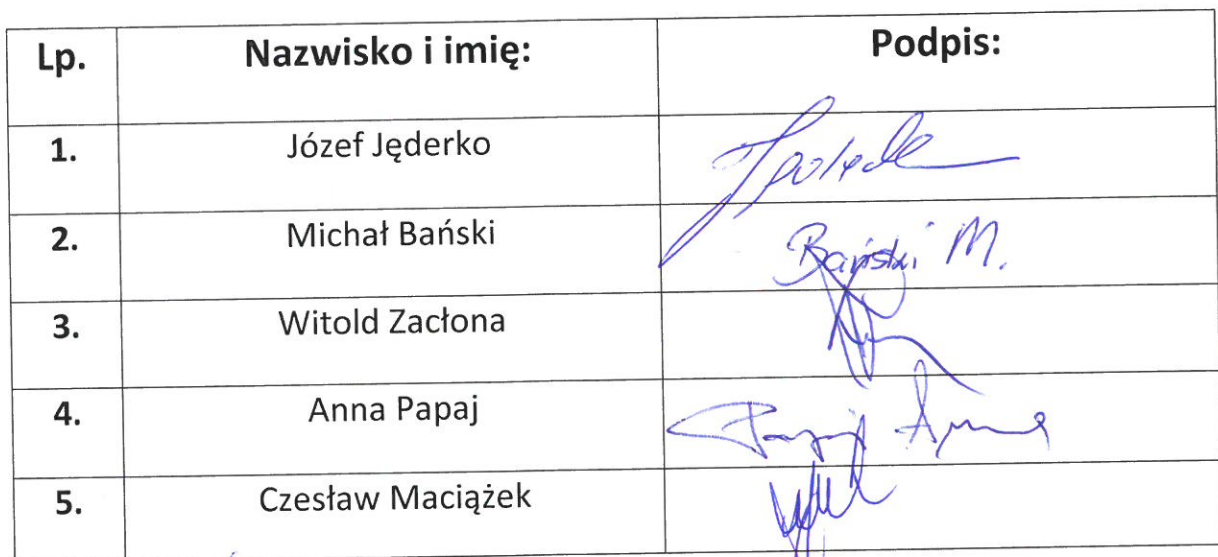 Lp. Nazwisko i imię: Podpis:
1. Józef Jęderko
2. Michał Bański Bański M.
3. Witold Zacłona
4. Anna Papaj Papaj Anna
5. Czesław Maciążek